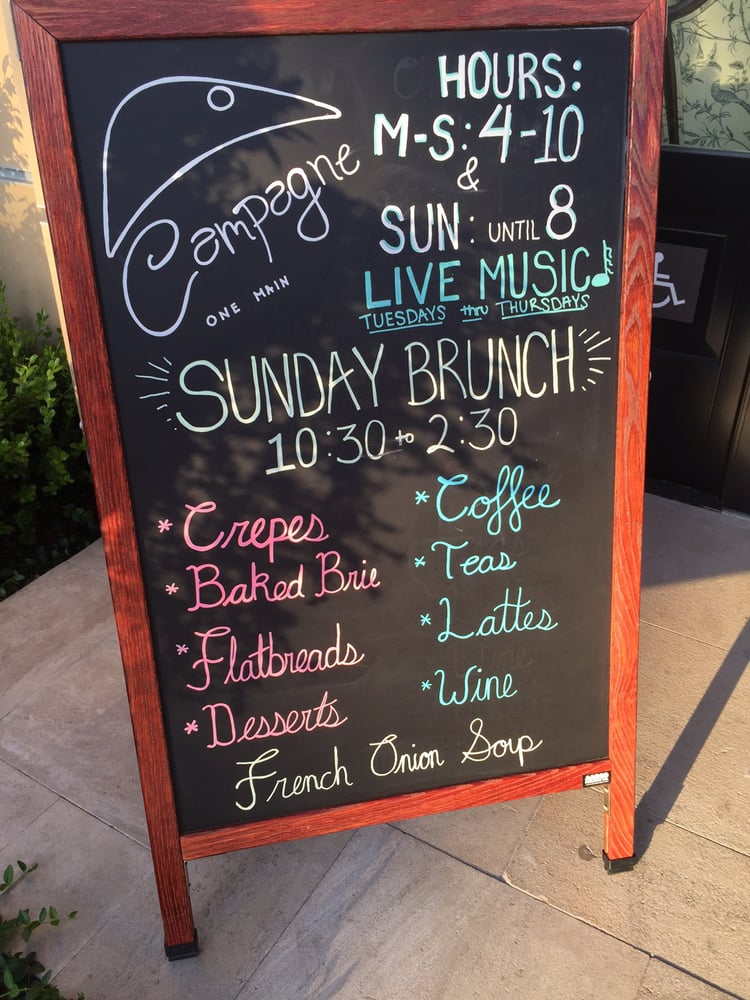 Campagne
ONE MAIN
HOURS:
M-S: 4-10
&
SUN: UNTIL 8
LIVE MUSIC
TUESDAYS thru THURSDAYS
SUNDAY BRUNCH
10:30 to 2:30
* Crepes
* Baked Brie
* Flatbreads
* Desserts
* Coffee
* Teas
* Lattes
* Wine
French Onion Soup